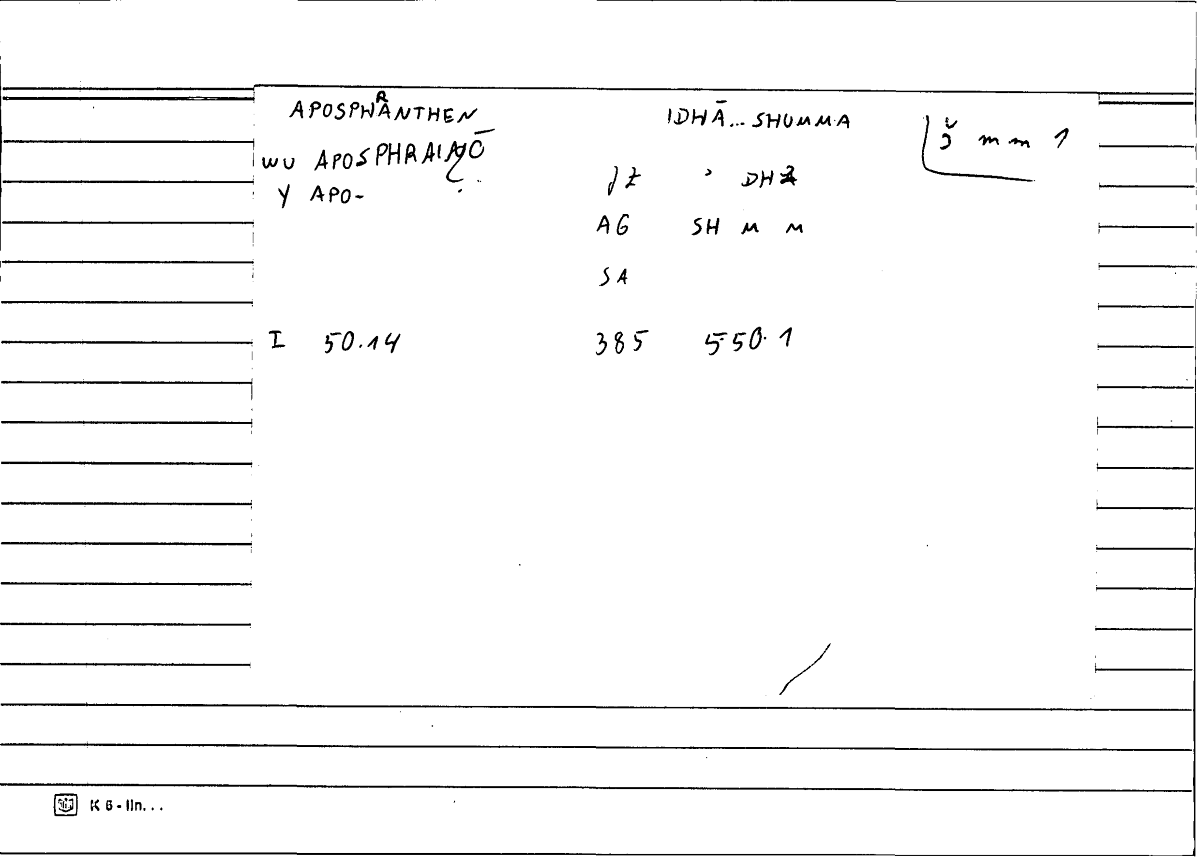 APOSPHRANTHEN IDHĀ... SHUMMA š m m 1
WU APOSPHRAINŌ
Y APO- ʾ DH
AG SH M M
SA
I 50.14 385 550.1
K 6 - lin...